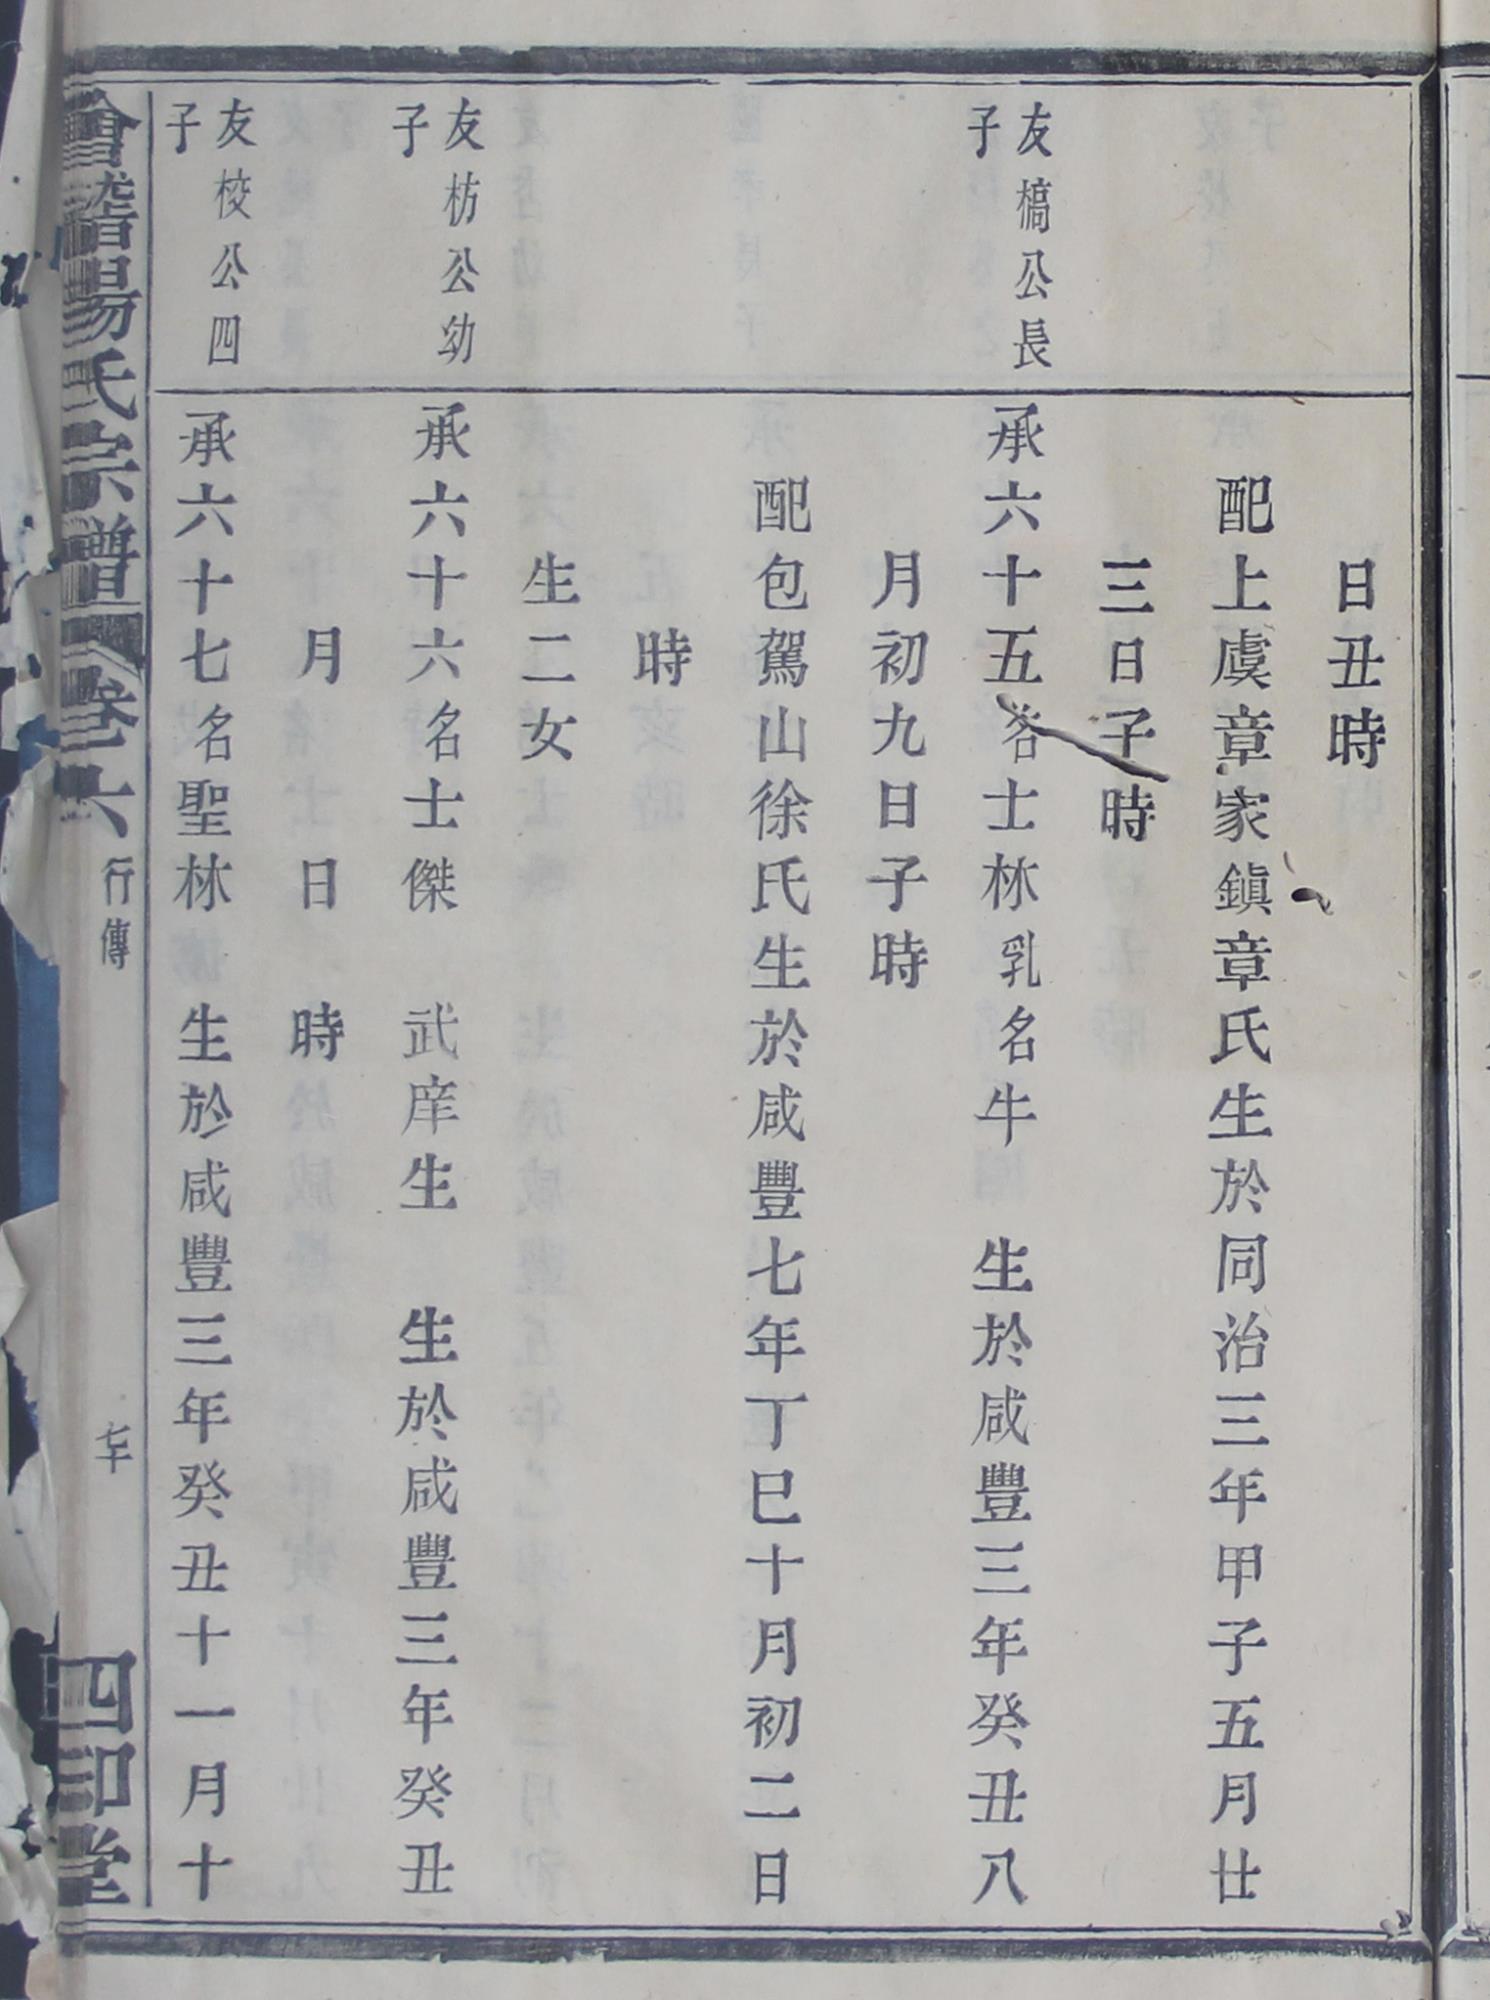 日丑時
配上虞章家鎭章氏生於同治三年甲子五月廿
三日子時
友檹公長
子
承六十五名士林乳名牛 生於咸豐三年癸丑八
月初九日子時
配包駕山徐氏生於咸豐七年丁巳十月初二日
時
生二女
友枋公幼
子
承六十六名士傑 武庠生 生於咸豐三年癸丑
月 日 時
友校公四
子
承六十七名聖林 生於咸豐三年癸丑十一月十
會稽楊氏宗譜 卷六 行傳 七十 四印堂